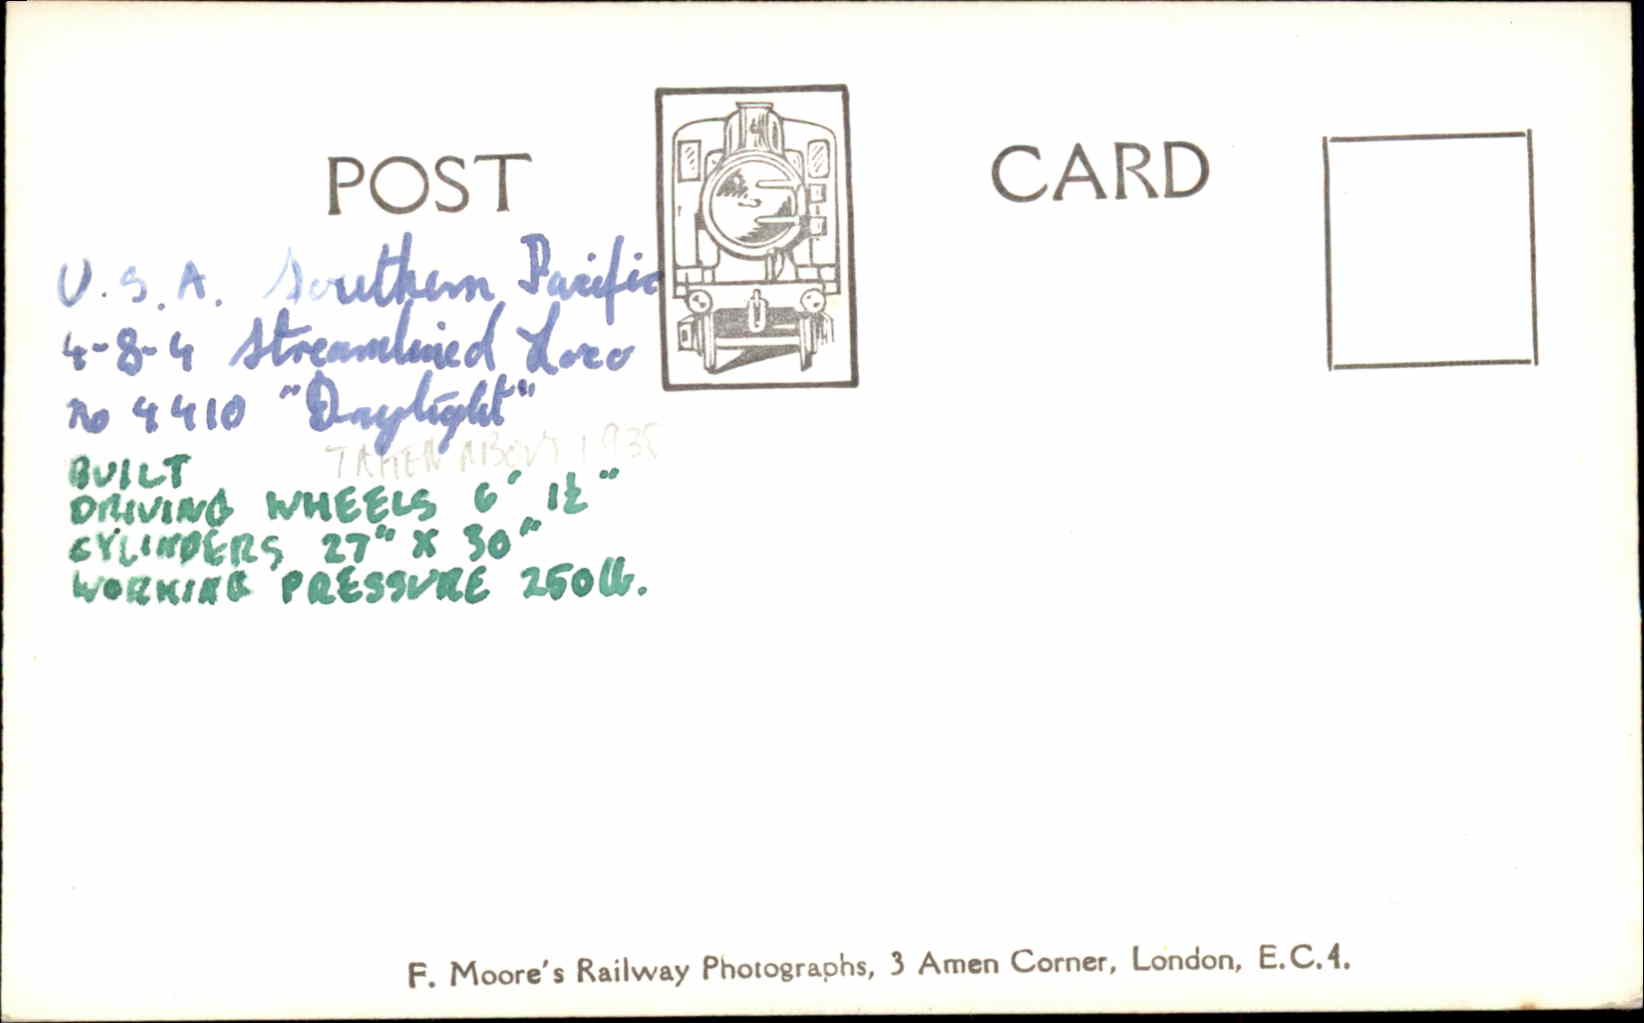 POST CARD
U.S.A. Southern Pacific
4-8-4 Streamlined Loco
no 4410 "Daylight"
TAKEN ABOUT 1938
BUILT
DRIVING WHEELS 6' 1½"
CYLINDERS 27" X 30"
WORKING PRESSURE 250lb.
F. Moore's Railway Photographs, 3 Amen Corner, London, E.C.4.